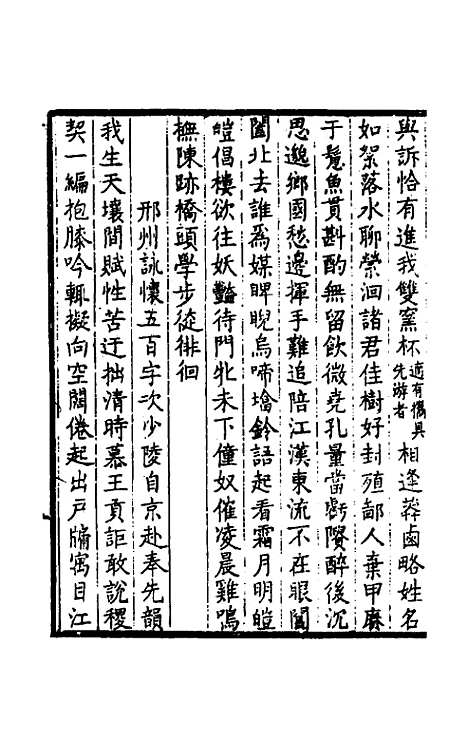 與訴恰有進我雙窯杯適有攜具先游者相逢莽鹵略姓名
如絮落水聊縈洄諸君佳樹好封殖鄙人棄甲麻
于鬛魚貫斟酌無留飲微堯孔量當虧隤醉後沉
思邈鄉國愁邊揮手難追陪江漢東流不在眼閶
闔北去誰爲媒睥睨烏啼墖鈴語起看霜月明皚
皚倡樓欲往妖豔待門牝未下僮奴催凌晨雞鳴
撫陳跡橋頭學步從徘徊
邢州詠懷五百字次少陵自京赴奉先韻
我生天壤間賦性苦迂拙清時慕王貢詎敢說稷
契一編抱膝吟輒擬向空闊倦起出戸牖寓目江